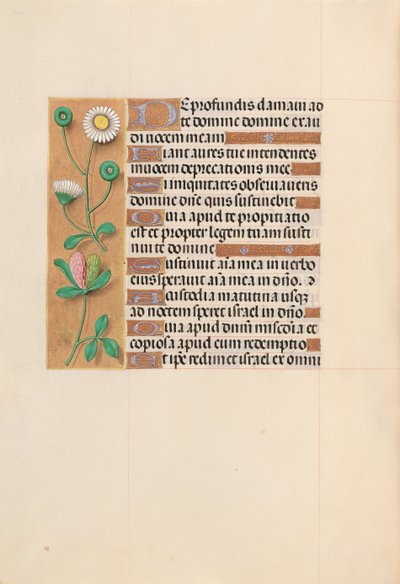 De profundis clamaui ad
te domine domine exau
di uocem meam
Fiant aures tue intendentes
in uocem deprecationis mee
Si iniquitates obseruaueris
domine dn̄e quis sustinebit
Quia apud te propitiatio
est et propter legem tuam susti
nui te domine
Sustinuit aīa mea in uerbo
eius sperauit aīa mea in dn̄o
A custodia matutina usqꝫ
ad noctem speret israel in dn̄o
Quia apud dn̄m mīscdīa et
copiosa apud eum redemptio
Et ipē redimet israel ex omni